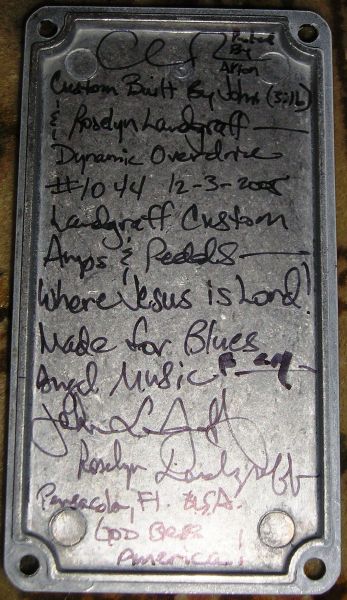 By
Arion
Custom Built By John (Silb)
& Roselyn Landgraff
Dynamic Overdrive
#1044 12-3-2005
Landgraff Custom
Amps & Pedals
Where Jesus is Lord!
Made for Blues
Angel Music
Roselyn Landgraff
Pensacola, Fl. USA.
GOD Bless
America!